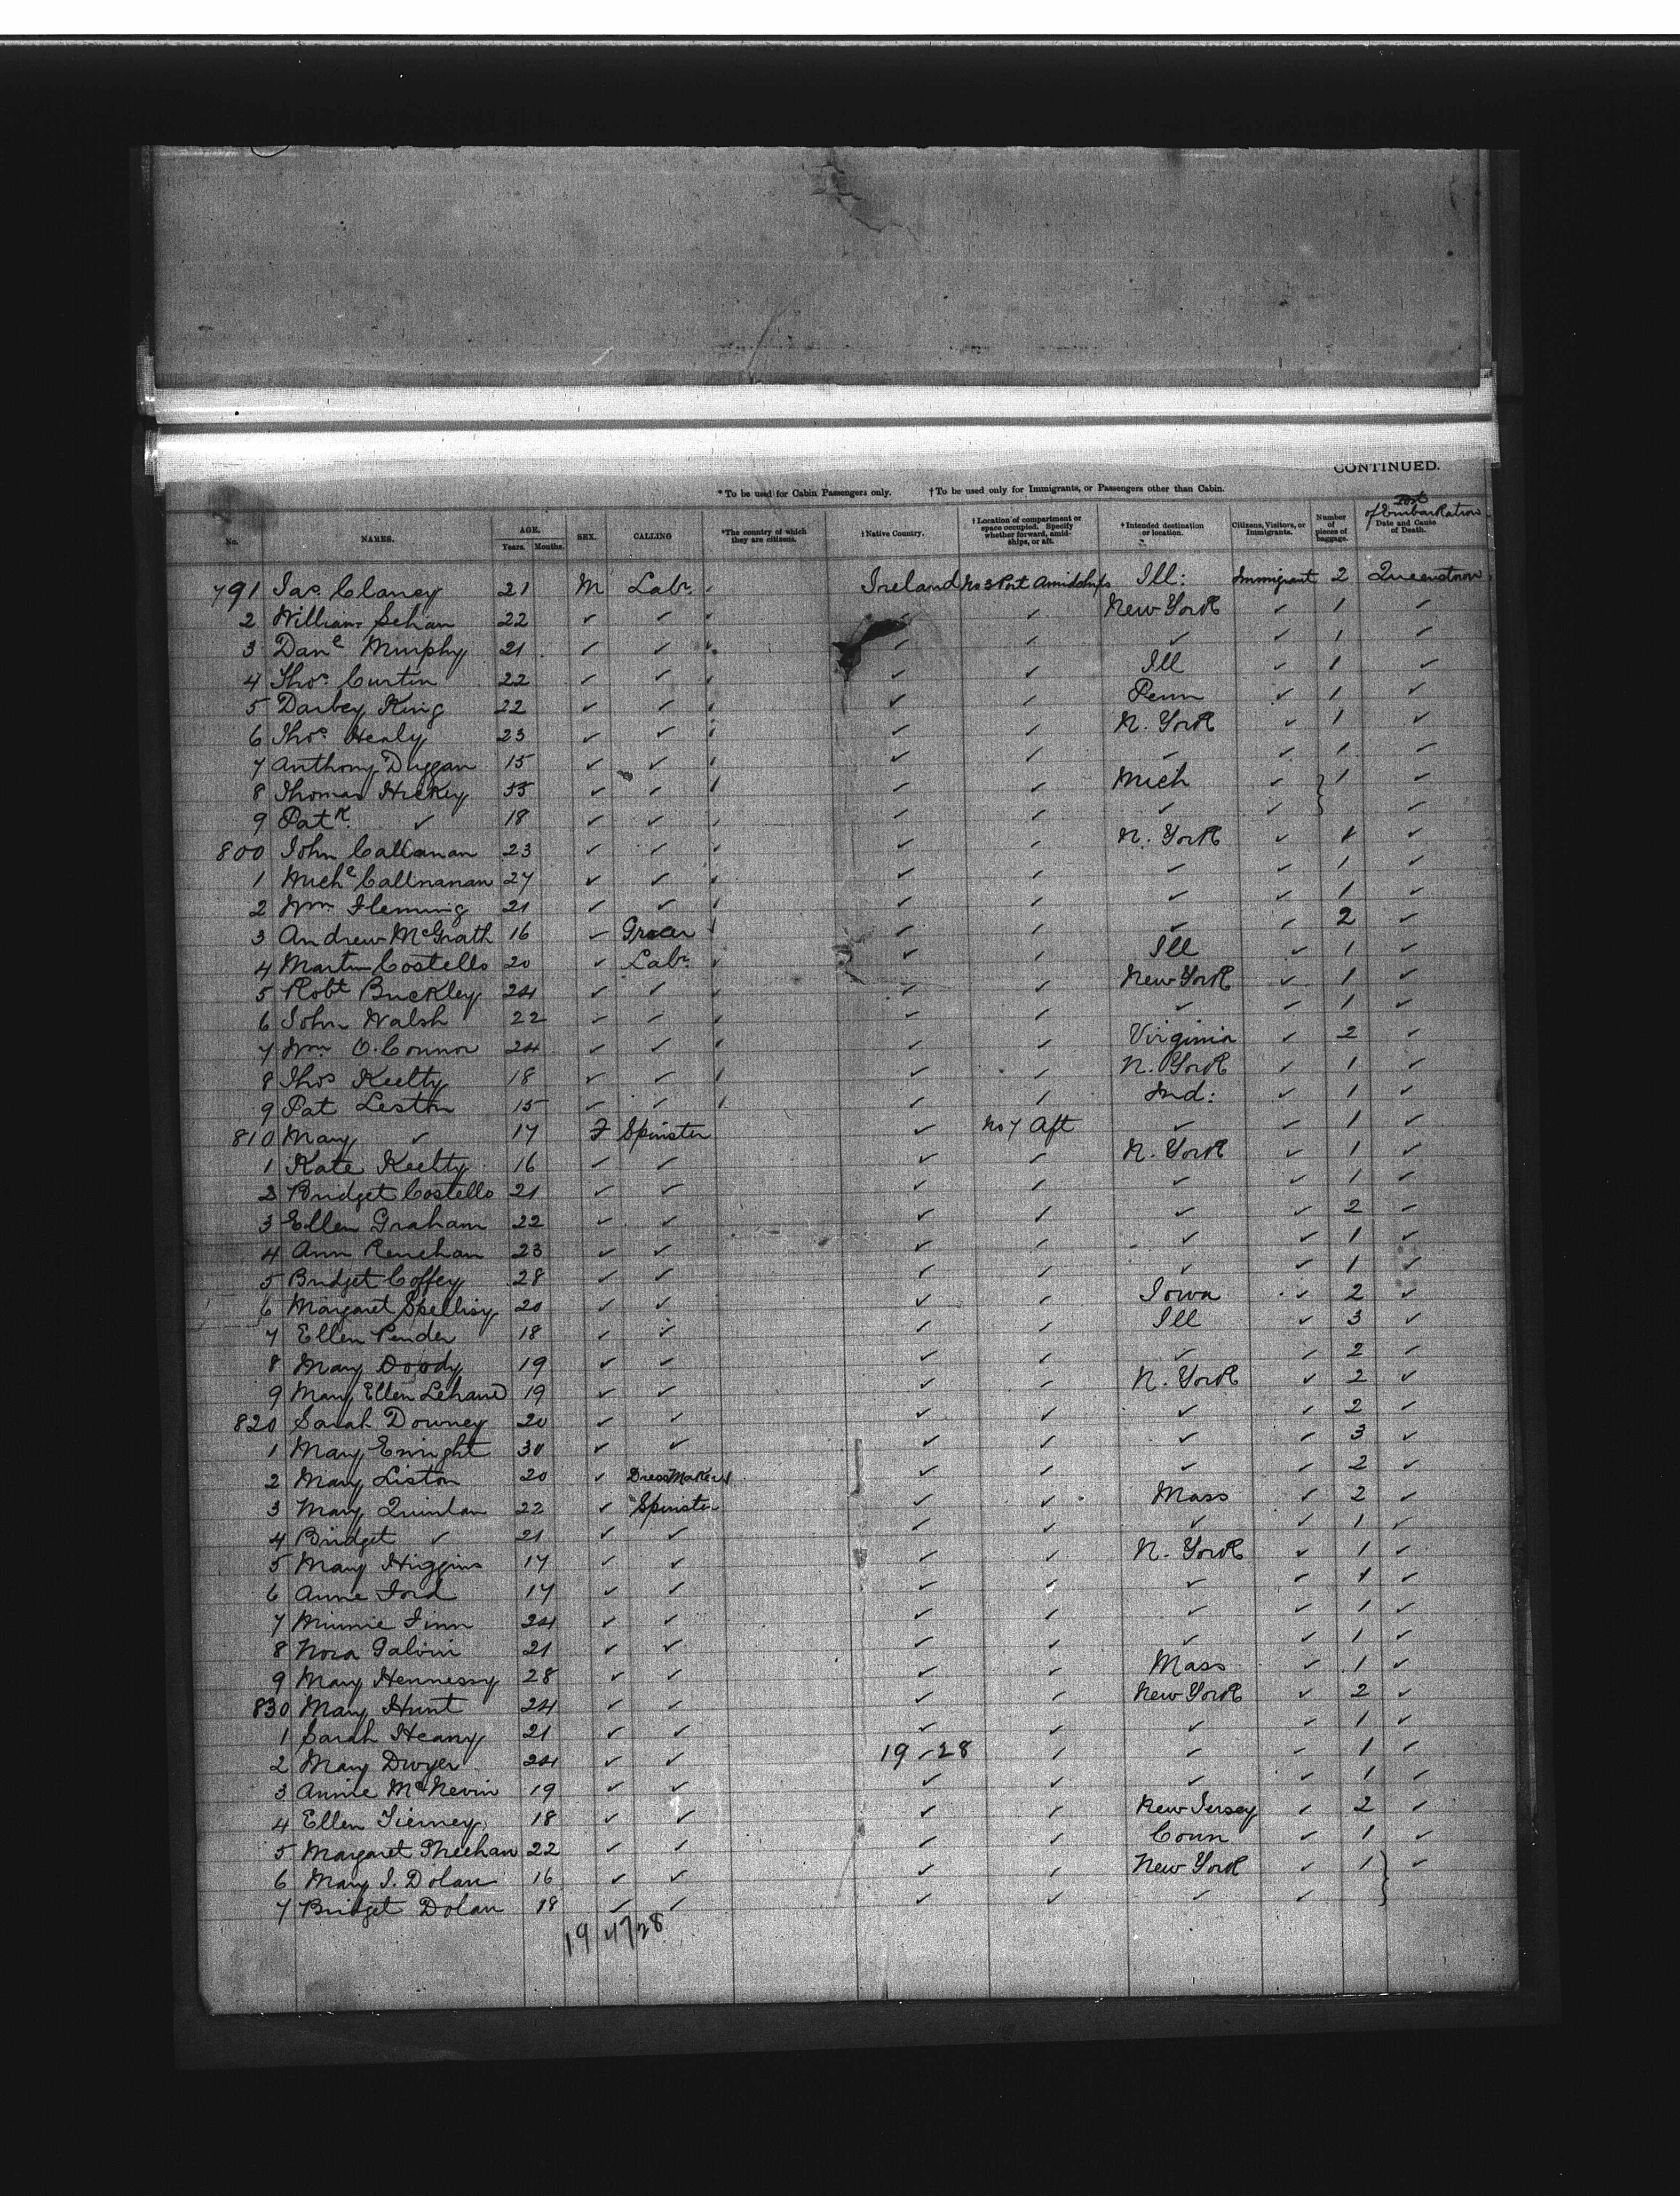 CONTINUED.
* To be used for Cabin Passengers only. † To be used only for Immigrants, or Passengers other than Cabin.
No. NAMES. AGE. Years. Months. SEX. CALLING *The country of which they are citizens. †Native Country. †Location of compartment or space occupied. Specify whether forward, amidships, or aft. †Intended destination or location. Citizens, Visitors, or Immigrants. Number of pieces of baggage. Port of Embarkation Date and Cause of Death.
791 Jas. Clancy 21 M Labr. Ireland No 3 Port Amidships Ill: Immigrant 2 Queenstown
2 William Sehan 22 ✓ ✓ ✓ ✓ New York ✓ 1 ✓
3 Danl Murphy 21 ✓ ✓ ✓ ✓ ✓ ✓ 1 ✓
4 Thos. Curtin 22 ✓ ✓ ✓ ✓ Ill ✓ 1 ✓
5 Darbey King 22 ✓ ✓ ✓ ✓ Penn ✓ 1 ✓
6 Thos. Healy 23 ✓ ✓ ✓ ✓ N. York ✓ 1 ✓
7 Anthony Duggan 15 ✓ ✓ ✓ ✓ ✓ ✓ 1 ✓
8 Thomas Hickey 55 ✓ ✓ ✓ ✓ Mich ✓ 1 ✓
9 Patk. ✓ 18 ✓ ✓ ✓ ✓ ✓ ✓ ✓
800 John Callanan 23 ✓ ✓ ✓ ✓ N. York ✓ 1 ✓
1 Michl Callnanan 27 ✓ ✓ ✓ ✓ ✓ ✓ 1 ✓
2 Wm. Fleming 21 ✓ ✓ ✓ ✓ ✓ ✓ 1 ✓
3 Andrew McGrath 16 ✓ Grocer ✓ ✓ ✓ ✓ 2 ✓
4 Martin Costello 20 ✓ Labr. ✓ ✓ Ill ✓ 1 ✓
5 Robt Buckley 24 ✓ ✓ ✓ ✓ New York ✓ 1 ✓
6 John Walsh 22 ✓ ✓ ✓ ✓ ✓ ✓ 1 ✓
7 Wm. O.Connor 24 ✓ ✓ ✓ ✓ Virginia ✓ 2 ✓
8 Thos Keelty 18 ✓ ✓ ✓ ✓ N. York ✓ 1 ✓
9 Pat Leston 15 ✓ ✓ ✓ ✓ Ind: ✓ 1 ✓
810 Mary ✓ 17 F Spinster ✓ No 7 Aft ✓ ✓ 1 ✓
1 Kate Keelty 16 ✓ ✓ ✓ ✓ N. York ✓ 1 ✓
2 Bridget Costello 21 ✓ ✓ ✓ ✓ ✓ ✓ 1 ✓
3 Ellen Graham 22 ✓ ✓ ✓ ✓ ✓ ✓ 2 ✓
4 Ann Renehan 23 ✓ ✓ ✓ ✓ ✓ ✓ 1 ✓
5 Bridget Coffey 28 ✓ ✓ ✓ ✓ ✓ ✓ 1 ✓
6 Margaret Spellisy 20 ✓ ✓ ✓ ✓ Iowa ✓ 2 ✓
7 Ellen Pender 18 ✓ ✓ ✓ ✓ Ill ✓ 3 ✓
8 Mary Doody 19 ✓ ✓ ✓ ✓ ✓ ✓ 2 ✓
9 Mary Ellen Lehane 19 ✓ ✓ ✓ ✓ N. York ✓ 2 ✓
820 Sarah Downey 20 ✓ ✓ ✓ ✓ ✓ ✓ 2 ✓
1 Mary Enright 30 ✓ ✓ ✓ ✓ ✓ ✓ 3 ✓
2 Mary Liston 20 ✓ DressMaker ✓ ✓ ✓ ✓ 2 ✓
3 Mary Quinlan 22 ✓ Spinster ✓ ✓ Mass ✓ 2 ✓
4 Bridget ✓ 21 ✓ ✓ ✓ ✓ ✓ ✓ 1 ✓
5 Mary Higgins 17 ✓ ✓ ✓ ✓ N. York ✓ 1 ✓
6 Anne Ford 17 ✓ ✓ ✓ ✓ ✓ ✓ 1 ✓
7 Minnie Finn 24 ✓ ✓ ✓ ✓ ✓ ✓ 1 ✓
8 Nora Galvin 21 ✓ ✓ ✓ ✓ ✓ ✓ 1 ✓
9 Mary Hennessy 28 ✓ ✓ ✓ ✓ Mass ✓ 1 ✓
830 Mary Hunt 24 ✓ ✓ ✓ ✓ New York ✓ 2 ✓
1 Sarah Heany 21 ✓ ✓ ✓ ✓ ✓ ✓ 1 ✓
2 Mary Dwyer 24 ✓ ✓ 19 ✓ 28 ✓ ✓ ✓ 1 ✓
3 Annie McNevin 19 ✓ ✓ ✓ ✓ ✓ ✓ 1 ✓
4 Ellen Tierney 18 ✓ ✓ ✓ ✓ New Jersey ✓ 2 ✓
5 Margaret Sheehan 22 ✓ ✓ ✓ ✓ Conn ✓ 1 ✓
6 Mary J. Dolan 16 ✓ ✓ ✓ ✓ New York ✓ 1 ✓
7 Bridget Dolan 18 ✓ ✓ ✓ ✓ ✓ ✓
19/47/28